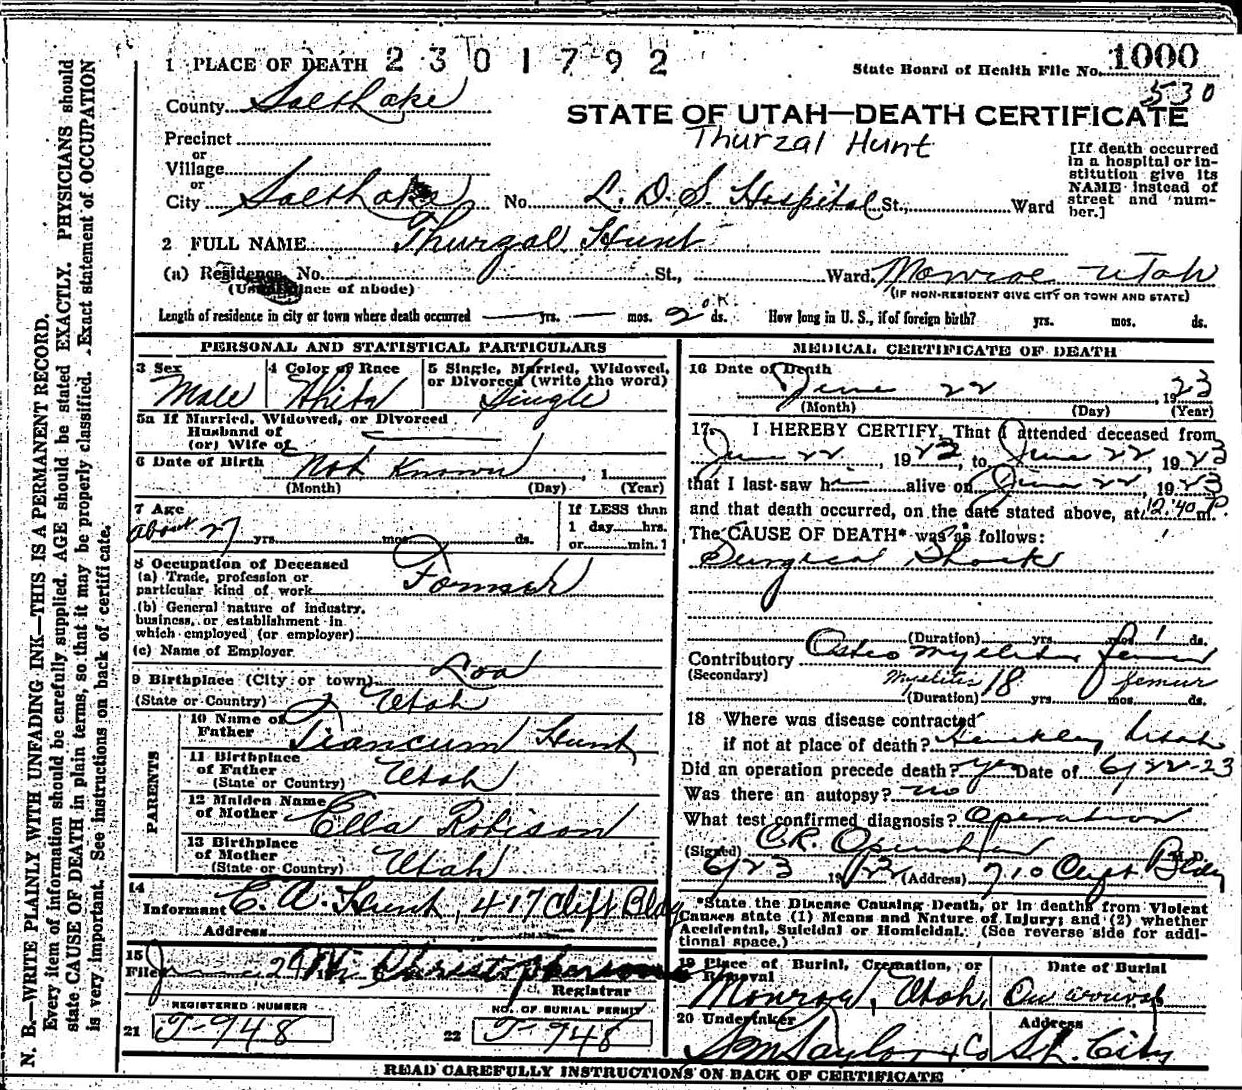 1 PLACE OF DEATH 2301792
State Board of Health File No. 1000
530
County Salt Lake
STATE OF UTAH—DEATH CERTIFICATE
Thurzal Hunt
Precinct
or
Village
or
City Salt Lake No. L. D. S. Hospital St., Ward
[If death occurred
in a hospital or in-
stitution give its
NAME instead of
street and num-
ber.]
2 FULL NAME Thurzal Hunt
(a) Residence, No. St., Ward, Monroe, Utah
(Usual place of abode) (IF NON-RESIDENT GIVE CITY OR TOWN AND STATE)
Length of residence in city or town where death occurred — yrs. — mos. 2 ds. How long in U. S., if of foreign birth? yrs. mos. ds.
PERSONAL AND STATISTICAL PARTICULARS
3 Sex 4 Color or Race 5 Single, Married, Widowed,
or Divorced (write the word)
Male White Single
5a If Married, Widowed, or Divorced
Husband of
(or) Wife of
6 Date of Birth Not Known , 1
(Month) (Day) (Year)
7 Age If LESS than
1 day hrs.
or min.?
about 27 yrs. mos. ds.
8 Occupation of Deceased
(a) Trade, profession or
particular kind of work Farmer
(b) General nature of industry,
business, or establishment in
which employed (or employer)
(c) Name of Employer
9 Birthplace (City or town) Loa
(State or Country) Utah
PARENTS
10 Name of
Father Teancum Hunt
11 Birthplace
of Father
(State or Country) Utah
12 Maiden Name
of Mother Ella Robison
13 Birthplace
of Mother
(State or Country) Utah
14
Informant E. A. Hunt, 417 Clift Bldg
Address
15
Filed June
Registrar
REGISTERED NUMBER NO. OF BURIAL PERMIT
21 T-948 22 T-948
MEDICAL CERTIFICATE OF DEATH
16 Date of Death
June 22 1923
(Month) (Day) (Year)
17. I HEREBY CERTIFY, That I attended deceased from
June 22, 1923, to June 22, 1923
that I last saw h alive on June 22, 1923
and that death occurred, on the date stated above, at 12:40 P. m.
The CAUSE OF DEATH* was as follows:
Surgical Shock
(Duration) yrs. mos. 1 ds.
Contributory Osteo myelitis femur
(Secondary) Myelitis femur
(Duration) 18 yrs. mos. ds.
18 Where was disease contracted
if not at place of death? Hinckley, Utah
Did an operation precede death? Yes Date of 6/22-23
Was there an autopsy? no
What test confirmed diagnosis? Operation
(Signed) C.R. Openshaw M.D.
6/23 19 (Address) 710 Clift Bldg
*State the Disease Causing Death, or in deaths from Violent
Causes state (1) Means and Nature of Injury; and (2) whether
Accidental, Suicidal or Homicidal. (See reverse side for addi-
tional space.)
19 Place of Burial, Cremation, or Removal Date of Burial
Monroe, Utah, On arrival
20 Undertaker Address
S.M. Taylor & Co S.L. City
READ CAREFULLY INSTRUCTIONS ON BACK OF CERTIFICATE
N. B.—WRITE PLAINLY WITH UNFADING INK—THIS IS A PERMANENT RECORD.
Every item of information should be carefully supplied. AGE should be stated EXACTLY. PHYSICIANS should
state CAUSE OF DEATH in plain terms, so that it may be properly classified. Exact statement of OCCUPATION
is very important. See instructions on back of certificate.